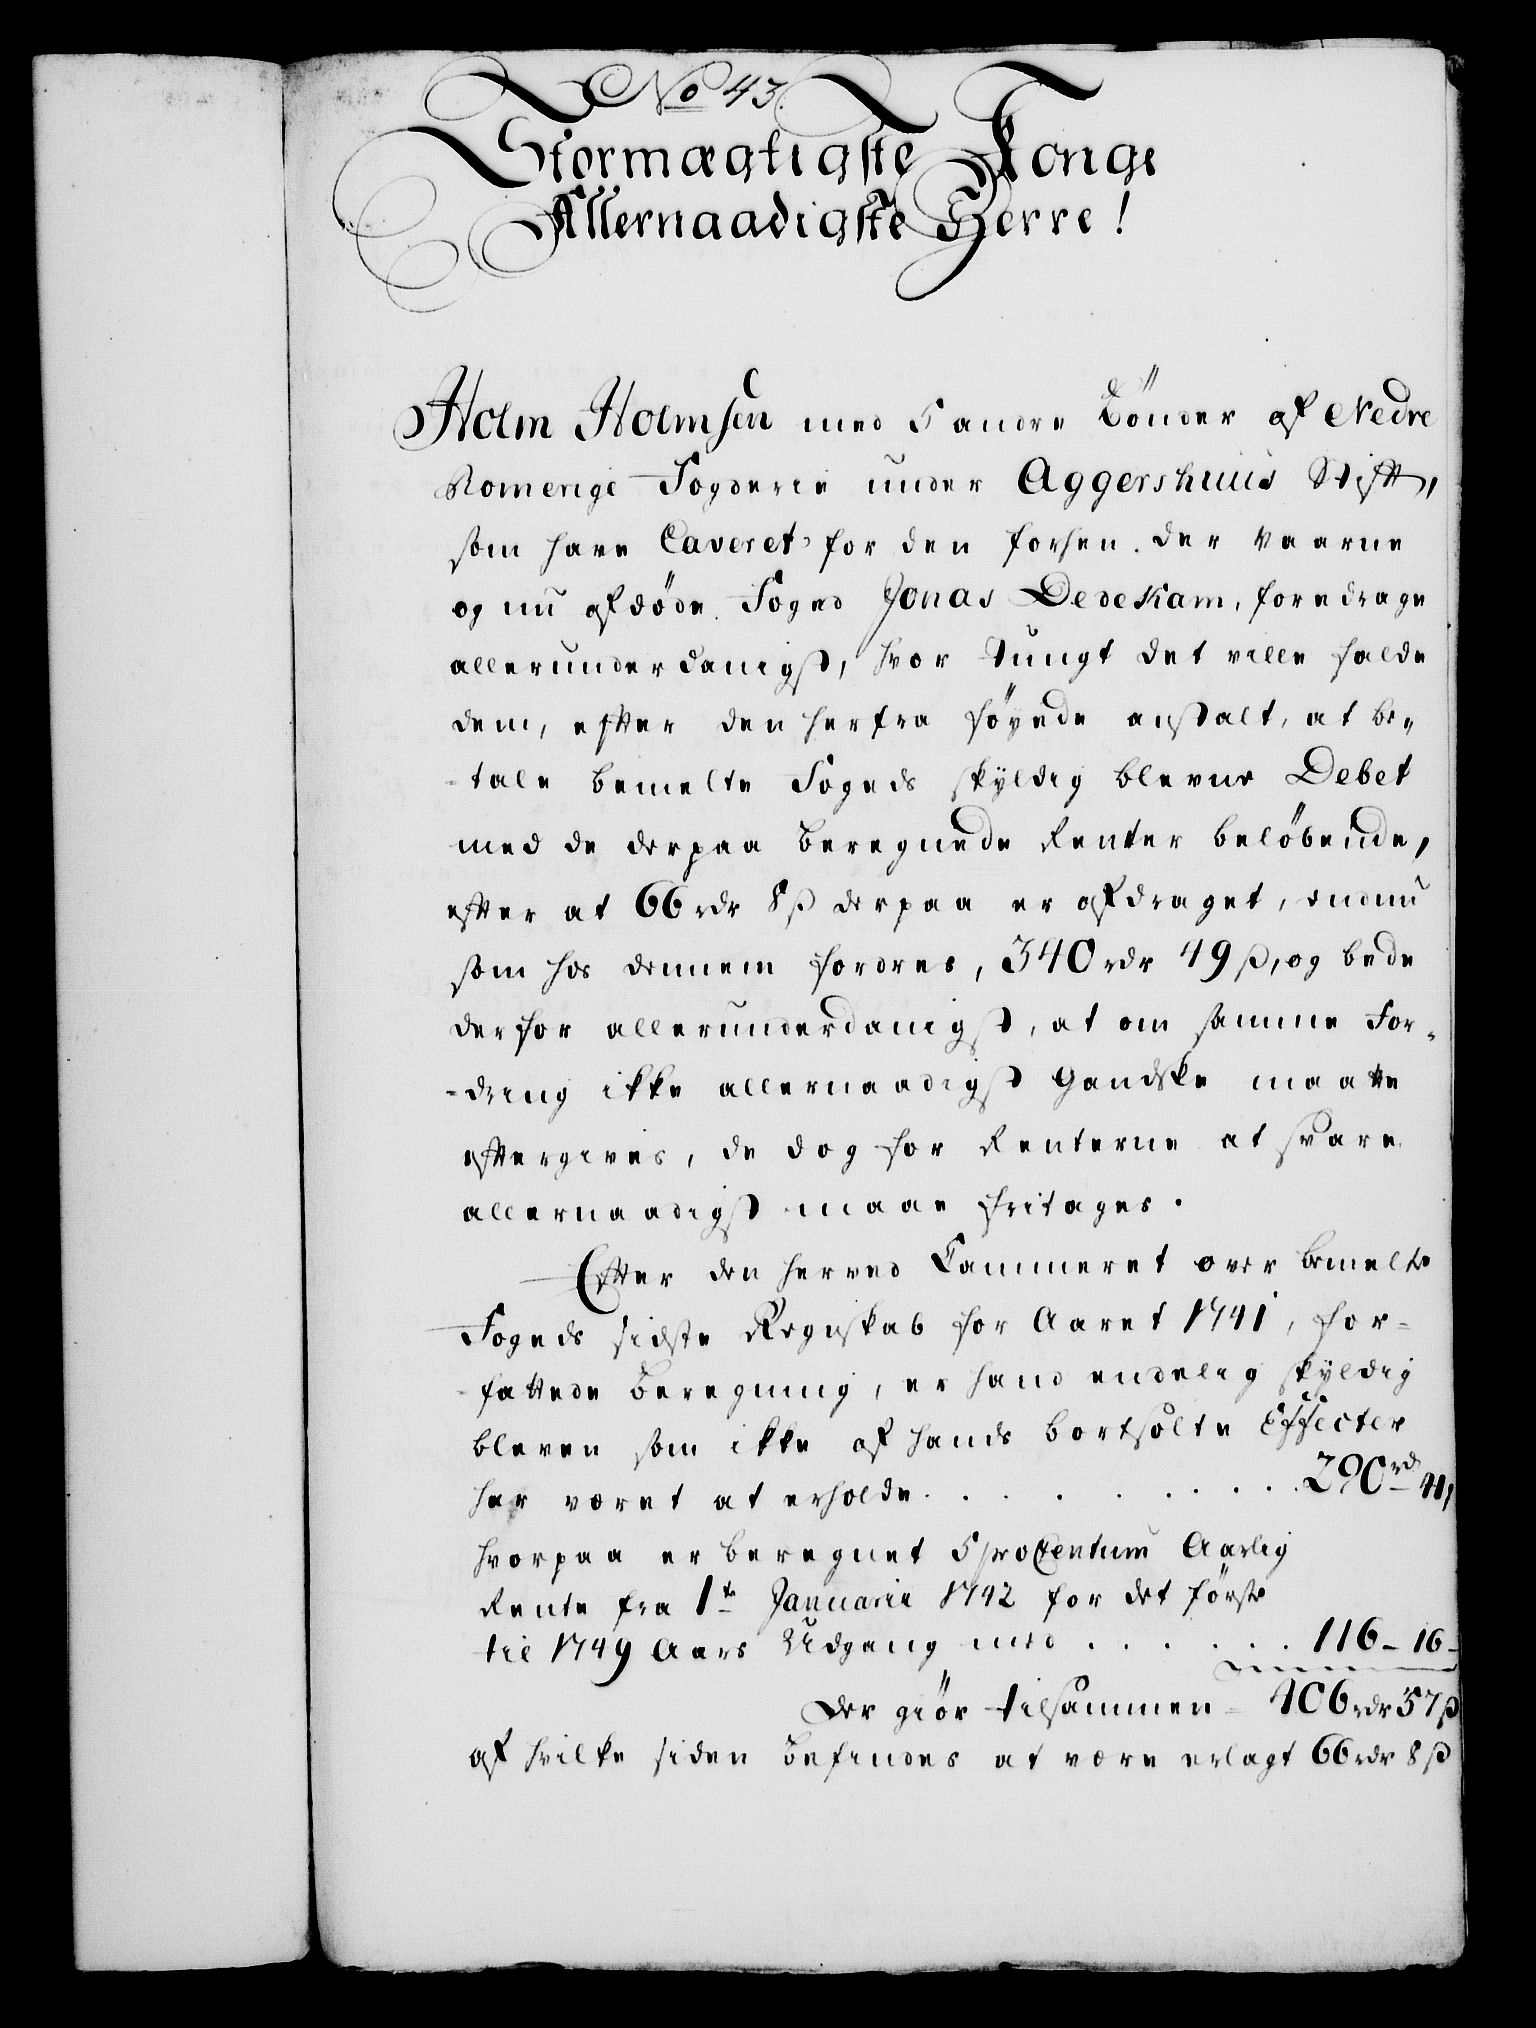 No 43.
Stormægtigste Konge
Allernaadigste Herre!
Holm Holmsen med 5 andre Bönder af Nedre
Romerige Fogderie under Aggershuus Stift,
som have Caveret for den forhen der værne
og nu afdöde Foged Jonas Dedekam, foredrage
allerunderdanigst, hvor tungt det ville falde
dem, efter den herfra föyede anstalt, at be-
-tale bemelte Fogeds skÿldig blevne Debet
med de derpaa beregnede Renter belöbende,
efter at 66 rdr 8 ß derpaa er afdraget, endnu
som hos dennem fordres, 340 rdr 49 ß, og bede
derfor allerunderdanigst, at om samme For-
-dring ikke allernaadigst gandske maatte
eftergives, de dog for Renterne at svare
allernaadigst maae fritages.
Efter den herved Cammeret over bemelte
Fogeds sidste Regnskab for Aaret 1741, for-
-fattede Beregning, er hand endelig skÿldig
bleven som ikke af hands bortsolte Effecter
har været at erholde . . . . . . . . . 290 rd 41,
hvorpaa er beregnet 5 proCentum Aarlig
Rente fra 1te Januarii 1742 for det förste
til 1749 Aars Udgang med . . . . . . 116 - 16 -
Der giör tilsammen - 406 rdr 57 ß
af hvilke siden befindes at være erlagt 66 rdr 8 ß